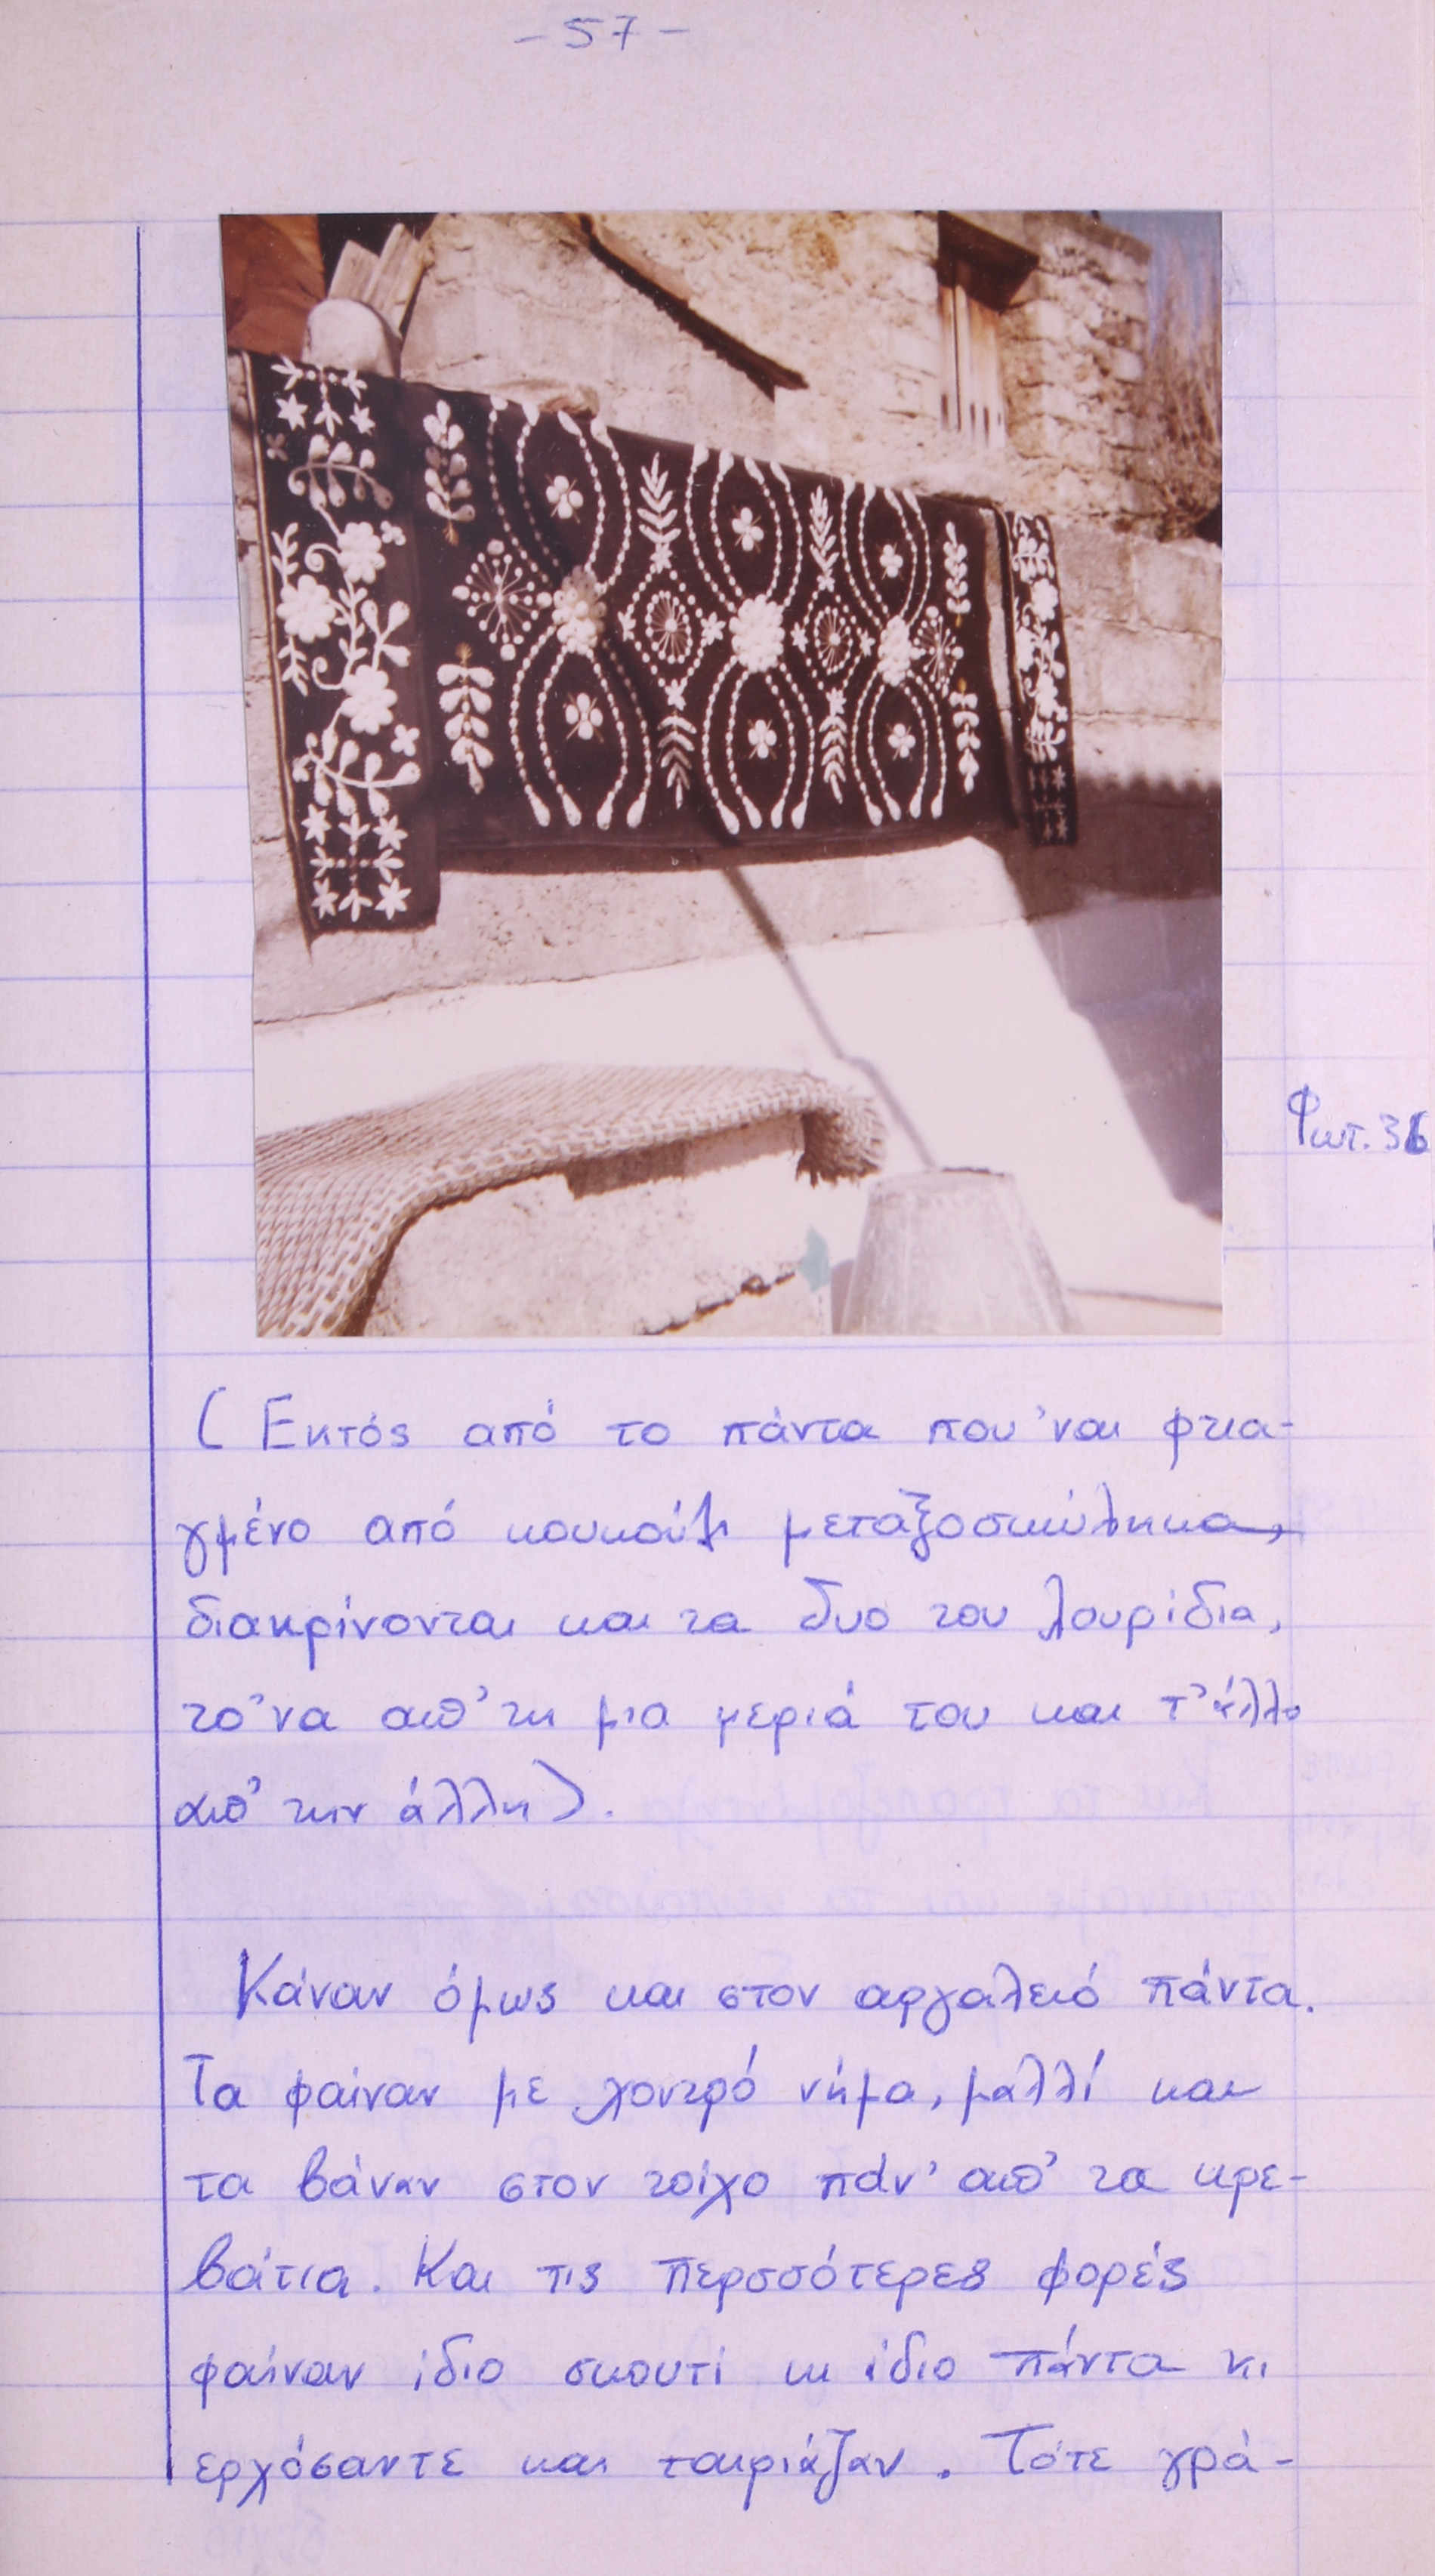 - 57 -
Φωτ. 36
(Εκτός από το πάντα που 'ναι φτια-
γμένο από κουκούλι μεταξοσκώληκα,
διακρίνονται και τα δυο του λουρίδια,
το 'να απ' τη μια μεριά του και τ' άλλο
απ' την άλλη).
Κάναν όμως και στον αργαλειό πάντα.
Τα φαίναν με χοντρό νήμα, μαλλί και
τα βάναν στον τοίχο πάν' απ' τα κρε-
βάτια. Και τις περσσότερες φορές
φαίναν ίδιο σκουτί κι ίδιο πάντα κι
ερχόσαντε και ταιριάζαν. Τότε γρά-